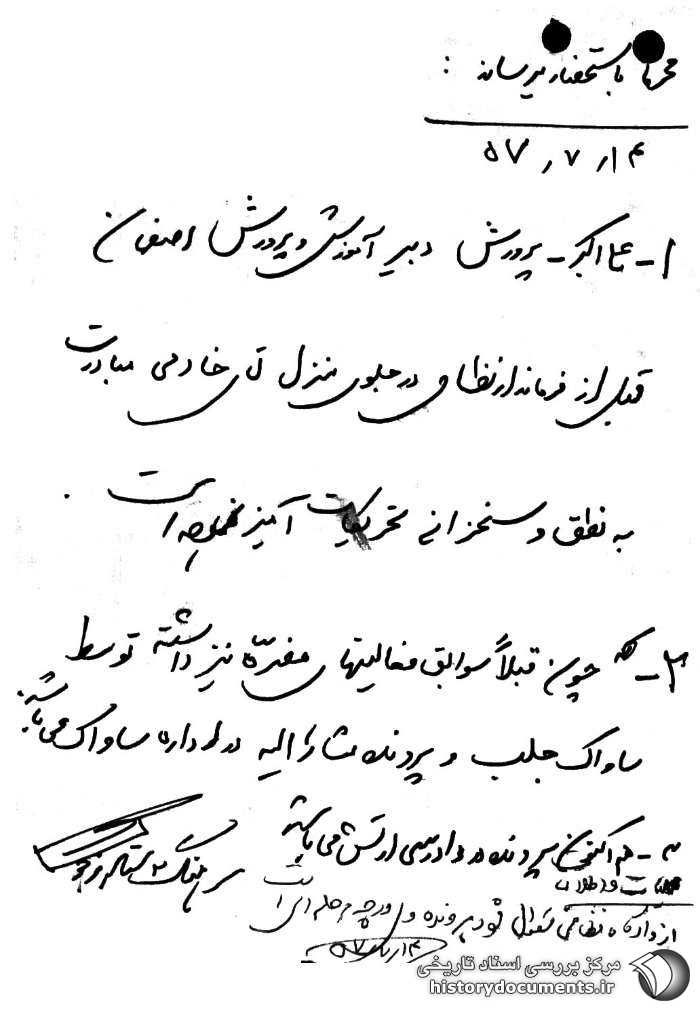 محترماً باستحضار میرساند :
۴ر۷ر۵۷
۱- علی اکبر - پرورش دبیر آموزش و پرورش اصفهان
قبل از فرماندار نظامی در جلوی منزل آقای خادمی مبادرت
به نطق و سخنرانی تحریکات آمیز نموده است .
۲- چون قبلاً سوابق فعالیتهای مضره نیز داشته توسط
ساواک جلب و پرونده مشارالیه در اداره ساواک می باشد
۳- هم اکنون پرونده در دادرسی ارتش می باشد
سرهنگ ستاد
عملیات و اطلاعات
از دادگاه نظامی سئوال شود پرونده وی در چه مرحله ای است
مرکز بررسی اسناد تاریخی
historydocuments.ir